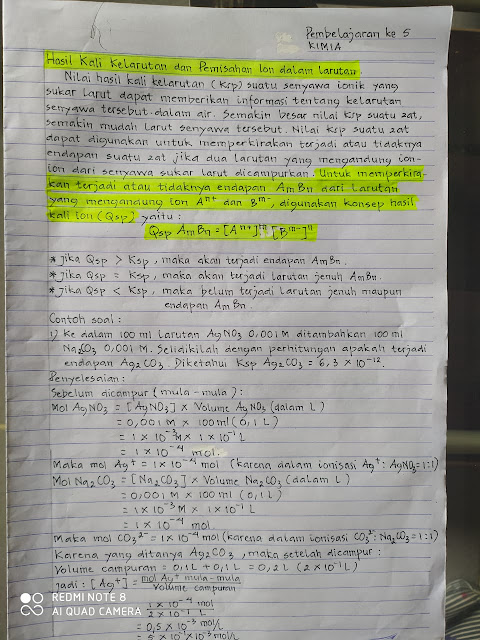 Pembelajaran ke 5
KIMIA
Hasil Kali Kelarutan dan Pemisahan Ion dalam larutan.
Nilai hasil kali kelarutan (Ksp) suatu senyawa ionik yang
sukar larut dapat memberikan informasi tentang kelarutan
senyawa tersebut dalam air. Semakin besar nilai Ksp suatu zat,
semakin mudah larut senyawa tersebut. Nilai Ksp suatu zat
dapat digunakan untuk memperkirakan terjadi atau tidaknya
endapan suatu zat jika dua larutan yang mengandung ion-
ion dari senyawa sukar larut dicampurkan. Untuk memperkira-
kan terjadi atau tidaknya endapan AmBn dari larutan
yang mengandung ion Aⁿ⁺ dan Bᵐ⁻, digunakan konsep hasil
kali Ion (Qsp) yaitu :
Qsp AmBn = [Aⁿ⁺]ᵐ [Bᵐ⁻]ⁿ
* Jika Qsp > Ksp, maka akan terjadi endapan AmBn.
* Jika Qsp = Ksp, maka akan terjadi larutan jenuh AmBn.
* Jika Qsp < Ksp, maka belum terjadi larutan jenuh maupun
endapan AmBn.
Contoh soal :
1) Ke dalam 100 ml larutan AgNO3 0,001 M ditambahkan 100 ml
Na2CO3 0,001 M. Selidikilah dengan perhitungan apakah terjadi
endapan Ag2CO3. Diketahui Ksp Ag2CO3 = 6,3 × 10⁻¹².
Penyelesaian :
Sebelum dicampur (mula-mula) :
Mol AgNO3 = [AgNO3] × Volume AgNO3 (dalam L)
= 0,001 M × 100 ml (0,1 L)
= 1 × 10⁻³ M × 1 × 10⁻¹ L
= 1 × 10⁻⁴ mol.
Maka mol Ag⁺ = 1 × 10⁻⁴ mol (karena dalam ionisasi Ag⁺ : AgNO3 = 1:1)
Mol Na2CO3 = [Na2CO3] × Volume Na2CO3 (dalam L)
= 0,001 M × 100 ml (0,1 L)
= 1 × 10⁻³ M × 1 × 10⁻¹ L
= 1 × 10⁻⁴ mol.
Maka mol CO3²⁻ = 1 × 10⁻⁴ mol (karena dalam ionisasi CO3²⁻ : Na2CO3 = 1:1)
Karena yang ditanya Ag2CO3, maka setelah dicampur :
Volume campuran = 0,1 L + 0,1 L = 0,2 L (2 × 10⁻¹ L)
Jadi : [Ag⁺] = mol Ag⁺ mula-mula
Volume campuran
= 1 × 10⁻⁴ mol
2 × 10⁻¹ L
= 0,5 × 10⁻³ mol/L
= 5 × 10⁻¹ × 10⁻³ mol/L
REDMI NOTE 8
AI QUAD CAMERA